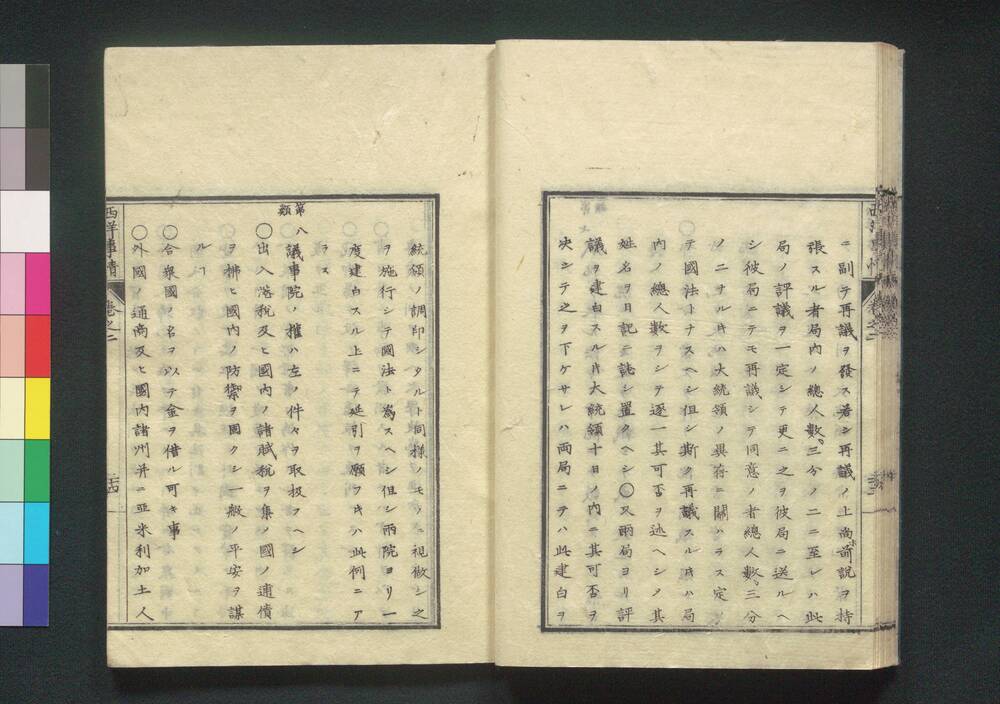 ニ副テ再議ヲ發ス若シ再議ノ上尚前説ヲ持
張スル者局内ノ總人數三分ノ二ニ至レハ此
局ノ評議ヲ一定シテ更ニ之ヲ彼局ニ送ルヘ
シ彼局ニテモ再議シテ同意ノ者總人數三分
ノ二ナル片ハ大統領ノ異存ニ關ハラス定メ
テ國法トナスヘシ但シ斯ク再議スル片ハ局
内ノ總人數ヲシテ逐一其可否ヲ述ヘシメ其
姓名ヲ日記ニ誌シ置クヘシ〇又兩局ヨリ評
議ヲ建白スル片大統領十日ノ内ニ其可否ヲ
决シテ之ヲ下ケサレハ両局ニテハ此建白ヲ
統領ノ調印シタルト同様ノモノニ視傚シ之
ヲ施行シテ國法ト為スヘシ但シ兩院ヨリ一
度建白スル上ニテ延引ヲ願フ片ハ此例ニア
ラス
第八類
議事院ノ權ハ左ノ件々ヲ取扱フヘシ
〇出入港税及ヒ國内ノ諸賦税ヲ集メ國ノ逋債
ヲ拂ヒ國内ノ防禦ヲ固クシ一般ノ平安ヲ謀
ルヿ
〇合衆國ノ名ヲ以テ金ヲ借ル可キ事
〇外國ノ通商及ヒ國内諸州并ニ亞米利加土人
西洋事情
卷之二
二十四